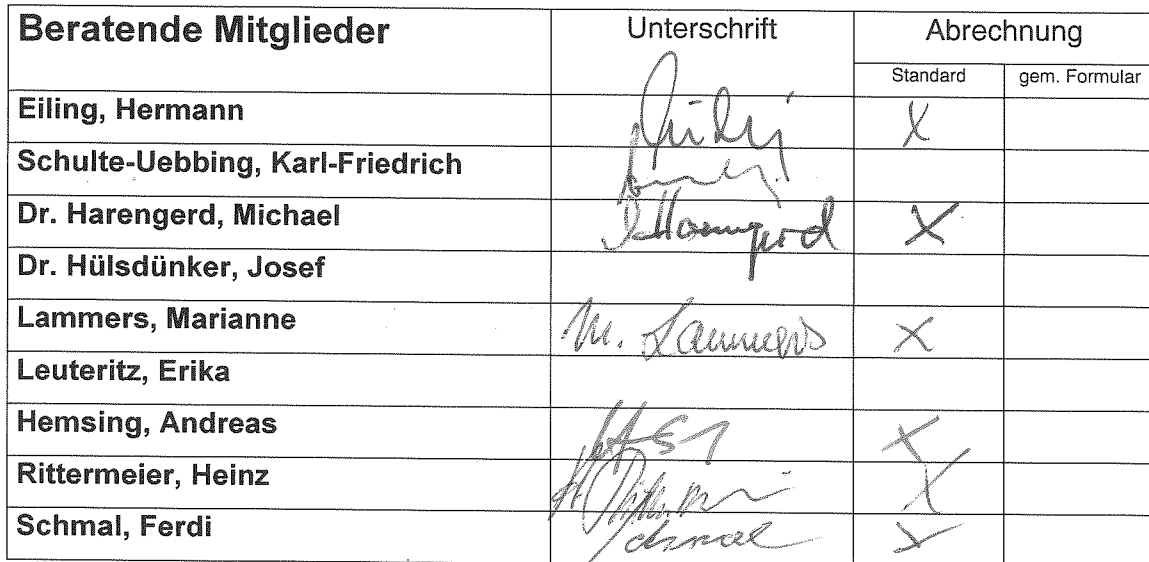 Beratende Mitglieder Unterschrift Abrechnung
Standard gem. Formular
Eiling, Hermann X
Schulte-Uebbing, Karl-Friedrich
Dr. Harengerd, Michael Harengerd X
Dr. Hülsdünker, Josef
Lammers, Marianne M. Lammers X
Leuteritz, Erika
Hemsing, Andreas X
Rittermeier, Heinz X
Schmal, Ferdi Schmal X